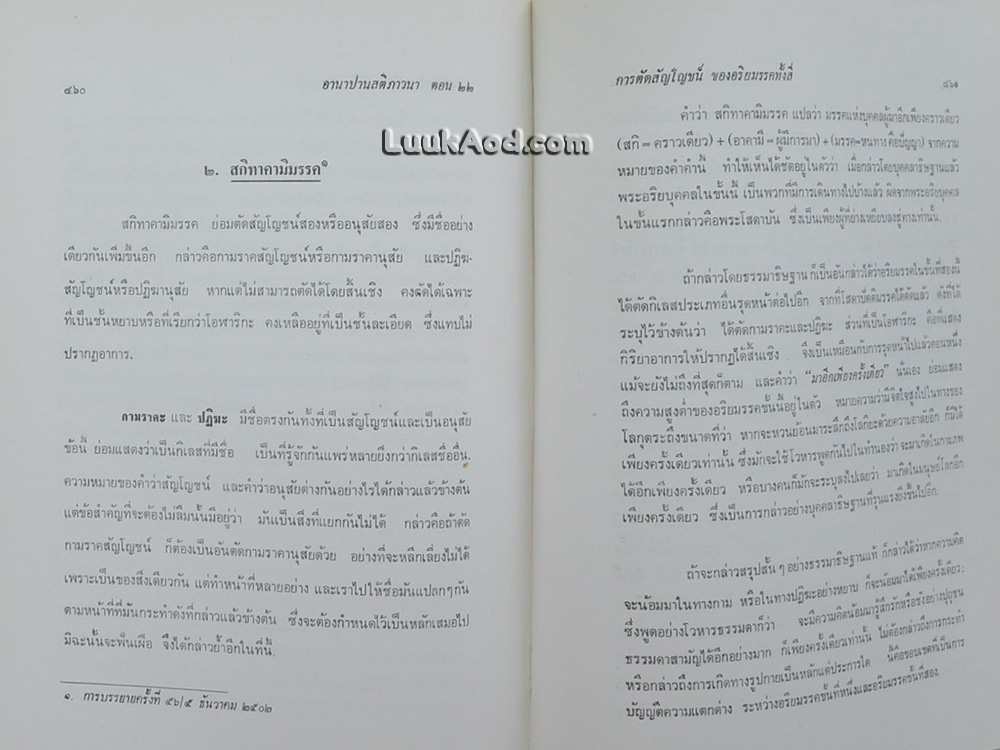 ๔๖๐
อานาปานสติภาวนา ตอน ๒๒
๒. สกิทาคามิมรรค๑
สกิทาคามิมรรค ย่อมตัดสัญโญชน์สองหรืออนุสัยสอง ซึ่งมีชื่ออย่าง
เดียวกันเพิ่มขึ้นอีก กล่าวคือกามราคสัญโญชน์หรือกามราคานุสัย และปฏิฆ-
สัญโญชน์หรือปฏิฆานุสัย หากแต่ไม่สามารถตัดได้โดยสิ้นเชิง คงตัดได้เฉพาะ
ที่เป็นชั้นหยาบหรือที่เรียกว่าโอฬาริกะ คงเหลืออยู่ที่เป็นชั้นละเอียด ซึ่งแทบไม่
ปรากฏอาการ.
กามราคะ และ ปฏิฆะ มีชื่อตรงกันทั้งที่เป็นสัญโญชน์และเป็นอนุสัย
ข้อนี้ ย่อมแสดงว่าเป็นกิเลสที่มีชื่อ เป็นที่รู้จักกันแพร่หลายยิ่งกว่ากิเลสชื่ออื่น.
ความหมายของคำว่าสัญโญชน์ และคำว่าอนุสัยต่างกันอย่างไรได้กล่าวแล้วข้างต้น
แต่ข้อสำคัญที่จะต้องไม่ลืมนั้นมีอยู่ว่า มันเป็นสิ่งที่แยกกันไม่ได้ กล่าวคือถ้าตัด
กามราคสัญโญชน์ ก็ต้องเป็นอันตัดกามราคานุสัยด้วย อย่างที่จะหลีกเลี่ยงไม่ได้
เพราะเป็นของสิ่งเดียวกัน แต่ทำหน้าที่หลายอย่าง และเราไปให้ชื่อมันแปลกๆกัน
ตามหน้าที่ที่มันกระทำดังที่กล่าวแล้วข้างต้น ซึ่งจะต้องกำหนดไว้เป็นหลักเสมอไป
มิฉะนั้นจะฟั่นเฝือ จึงได้กล่าวย้ำอีกในที่นี้.
๑. การบรรยายครั้งที่ ๕๖/๕ ธันวาคม ๒๕๐๒
การตัดสัญโญชน์ ของอริยมรรคทั้งสี่
๔๖๑
คำว่า สกิทาคามิมรรค แปลว่า มรรคแห่งบุคคลผู้มาอีกเพียงคราวเดียว
(สกิ = คราวเดียว) + (อาคามี = ผู้มีการมา) + (มรรค=หนทาง คือปัญญา) จากความ
หมายของคำคำนี้ ทำให้เห็นได้ชัดอยู่ในตัวว่า เมื่อกล่าวโดยบุคคลาธิษฐานแล้ว
พระอริยบุคคลในชั้นนี้ เป็นพวกที่มีการเดินทางไปบ้างแล้ว ผิดจากพระอริยบุคคล
ในขั้นแรกกล่าวคือพระโสดาบัน ซึ่งเป็นเพียงผู้ที่ย่างเหยียบลงสู่ทางเท่านั้น.
ถ้ากล่าวโดยธรรมาธิษฐาน ก็เป็นอันกล่าวได้ว่าอริยมรรคในขั้นที่สองนี้
ได้ตัดกิเลสประเภทอื่นรุดหน้าต่อไปอีก จากที่โสดาปัตติมรรคได้ตัดแล้ว ดังที่ได้
ระบุไว้ข้างต้นว่า ได้ตัดกามราคะและปฏิฆะ ส่วนที่เป็นโอฬาริกะ คือที่แสดง
กิริยาอาการให้ปรากฏได้สิ้นเชิง จึงเป็นเหมือนกับการรุดหน้าไปแล้วตอนหนึ่ง
แม้จะยังไม่ถึงที่สุดก็ตาม และคำว่า "มาอีกเพียงครั้งเดียว" นั่นเอง ย่อมแสดง
ถึงความสูงต่ำของอริยมรรคชั้นนี้อยู่ในตัว หมายความว่ามีจิตใจสูงไปในทางของ
โลกุตระถึงขนาดที่ว่า หากจะหวนย้อนมาระลึกถึงโลกิยะด้วยความอาลัยอีก ก็มีได้
เพียงครั้งเดียวเท่านั้น ซึ่งมักจะใช้โวหารพูดกันไปในทำนองว่า จะมาเกิดในกามภพ
ได้อีกเพียงครั้งเดียว หรือบางคนก็มักจะระบุลงไปเลยว่า มาเกิดในมนุษย์โลกอีก
เพียงครั้งเดียว ซึ่งเป็นการกล่าวอย่างบุคคลาธิษฐานที่รุนแรงยิ่งขึ้นไปอีก.
ถ้าจะกล่าวสรุปสั้น ๆ อย่างธรรมาธิษฐานแท้ ก็กล่าวได้ว่าหากความคิด
จะน้อมมาในทางกาม หรือในทางปฏิฆะอย่างหยาบ ก็จะน้อมมาได้เพียงครั้งเดียว;
ซึ่งพูดอย่างโวหารธรรมดาก็ว่า จะมีความคิดน้อมมารู้สึกรักหรือชังอย่างปุถุชน
ธรรมดาสามัญได้อีกอย่างมาก ก็เพียงครั้งเดียวเท่านั้น ไม่ต้องกล่าวถึงการกระทำ
หรือกล่าวถึงการเกิดทางรูปกายเป็นหลักแต่ประการใด นี้คือขอบเขตที่เป็นการ
บัญญัติความแตกต่าง ระหว่างอริยมรรคขั้นที่หนึ่งและอริยมรรคขั้นที่สอง.
LuukAod.com